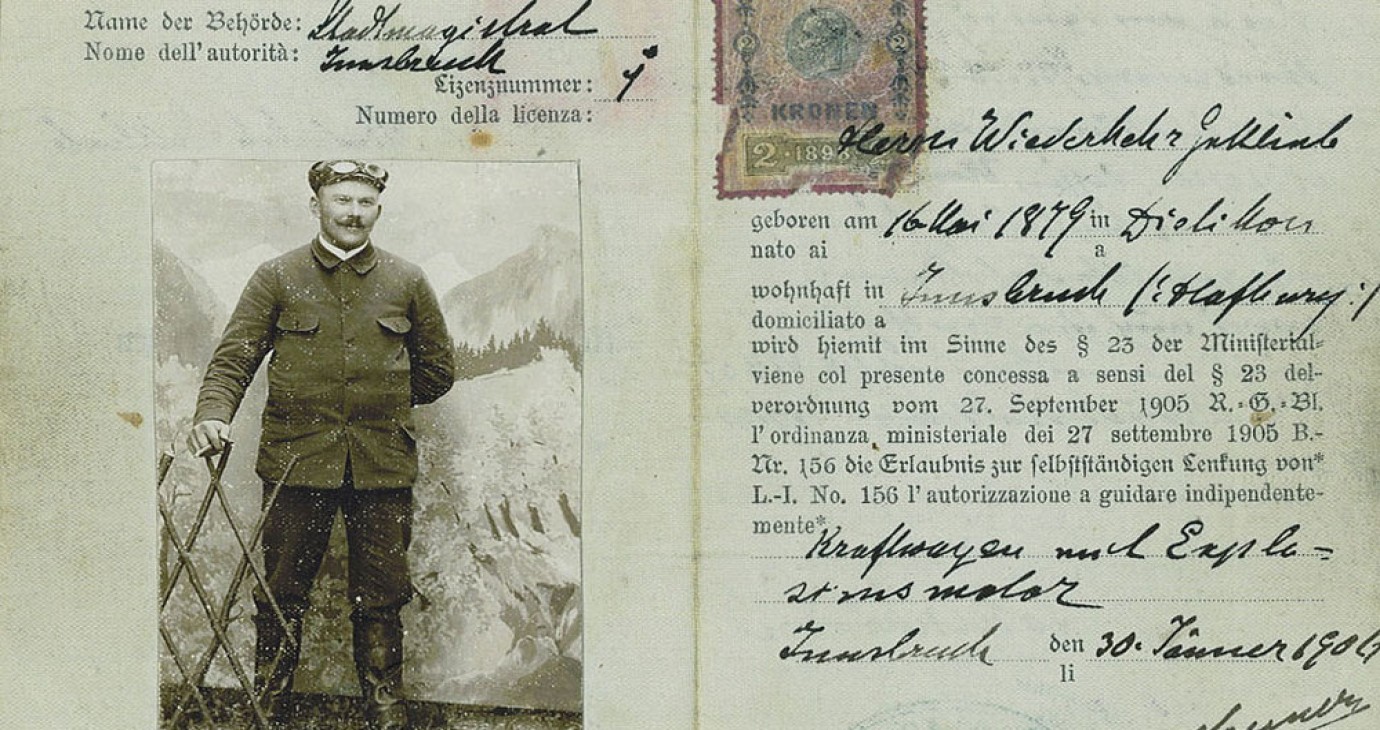 Name der Behörde: Stadtmagistrat
Nome dell'autorità: Innsbruck
Lizenznummer: 1
Numero della licenza:
KRONEN
2 · 1898 · 2
Herrn Wiederkehr Gottlieb
geboren am 16 Mai 1879 in Dietikon
nato ai a
wohnhaft in Innsbruck (: Hofburg :)
domiciliato a
wird hiemit im Sinne des § 23 der Ministerial-
viene col presente concessa a sensi del § 23 del-
verordnung vom 27. September 1905 R.-G.-Bl.
l'ordinanza ministeriale dei 27 settembre 1905 B.-
Nr. 156 die Erlaubnis zur selbstständigen Lenkung von*
L.-I. No. 156 l'autorizzazione a guidare indipendente-
mente*
Kraftwagen mit Explo-
sionsmotor
Innsbruck den 30. Jänner 190
li